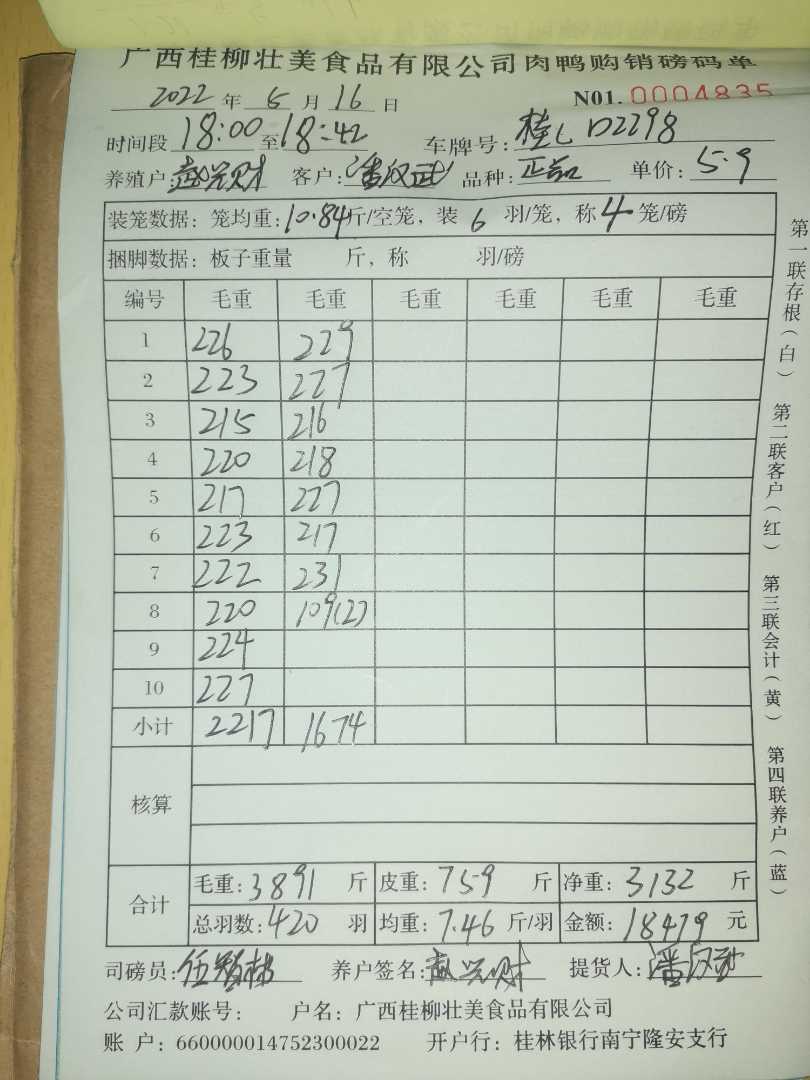 广西桂柳壮美食品有限公司肉鸭购销磅码单
2022 年 5 月 16 日 N01. 0004835
时间段 18:00 至 18:42 车牌号: 桂L D2298
养殖户 赵兴财 客户: 潘汉武 品种: 单价: 5.9
装笼数据: 笼均重: 10.84 斤/空笼, 装 6 羽/笼, 称 4 笼/磅
捆脚数据: 板子重量 斤, 称 羽/磅
编号 毛重 毛重 毛重 毛重 毛重 毛重
1 226 229
2 223 227
3 215 216
4 220 218
5 217 227
6 223 217
7 222 231
8 220 109(2)
9 224
10 227
小计 2217 1674
核算
合计 毛重: 3891 斤 皮重: 759 斤 净重: 3132 斤
总羽数: 420 羽 均重: 7.46 斤/羽 金额: 18479 元
司磅员: 养户签名: 赵兴财 提货人: 潘汉武
公司汇款账号: 户名: 广西桂柳壮美食品有限公司
账 户: 660000014752300022 开户行: 桂林银行南宁隆安支行
第一联存根(白) 第二联客户(红) 第三联会计(黄) 第四联养户(蓝)